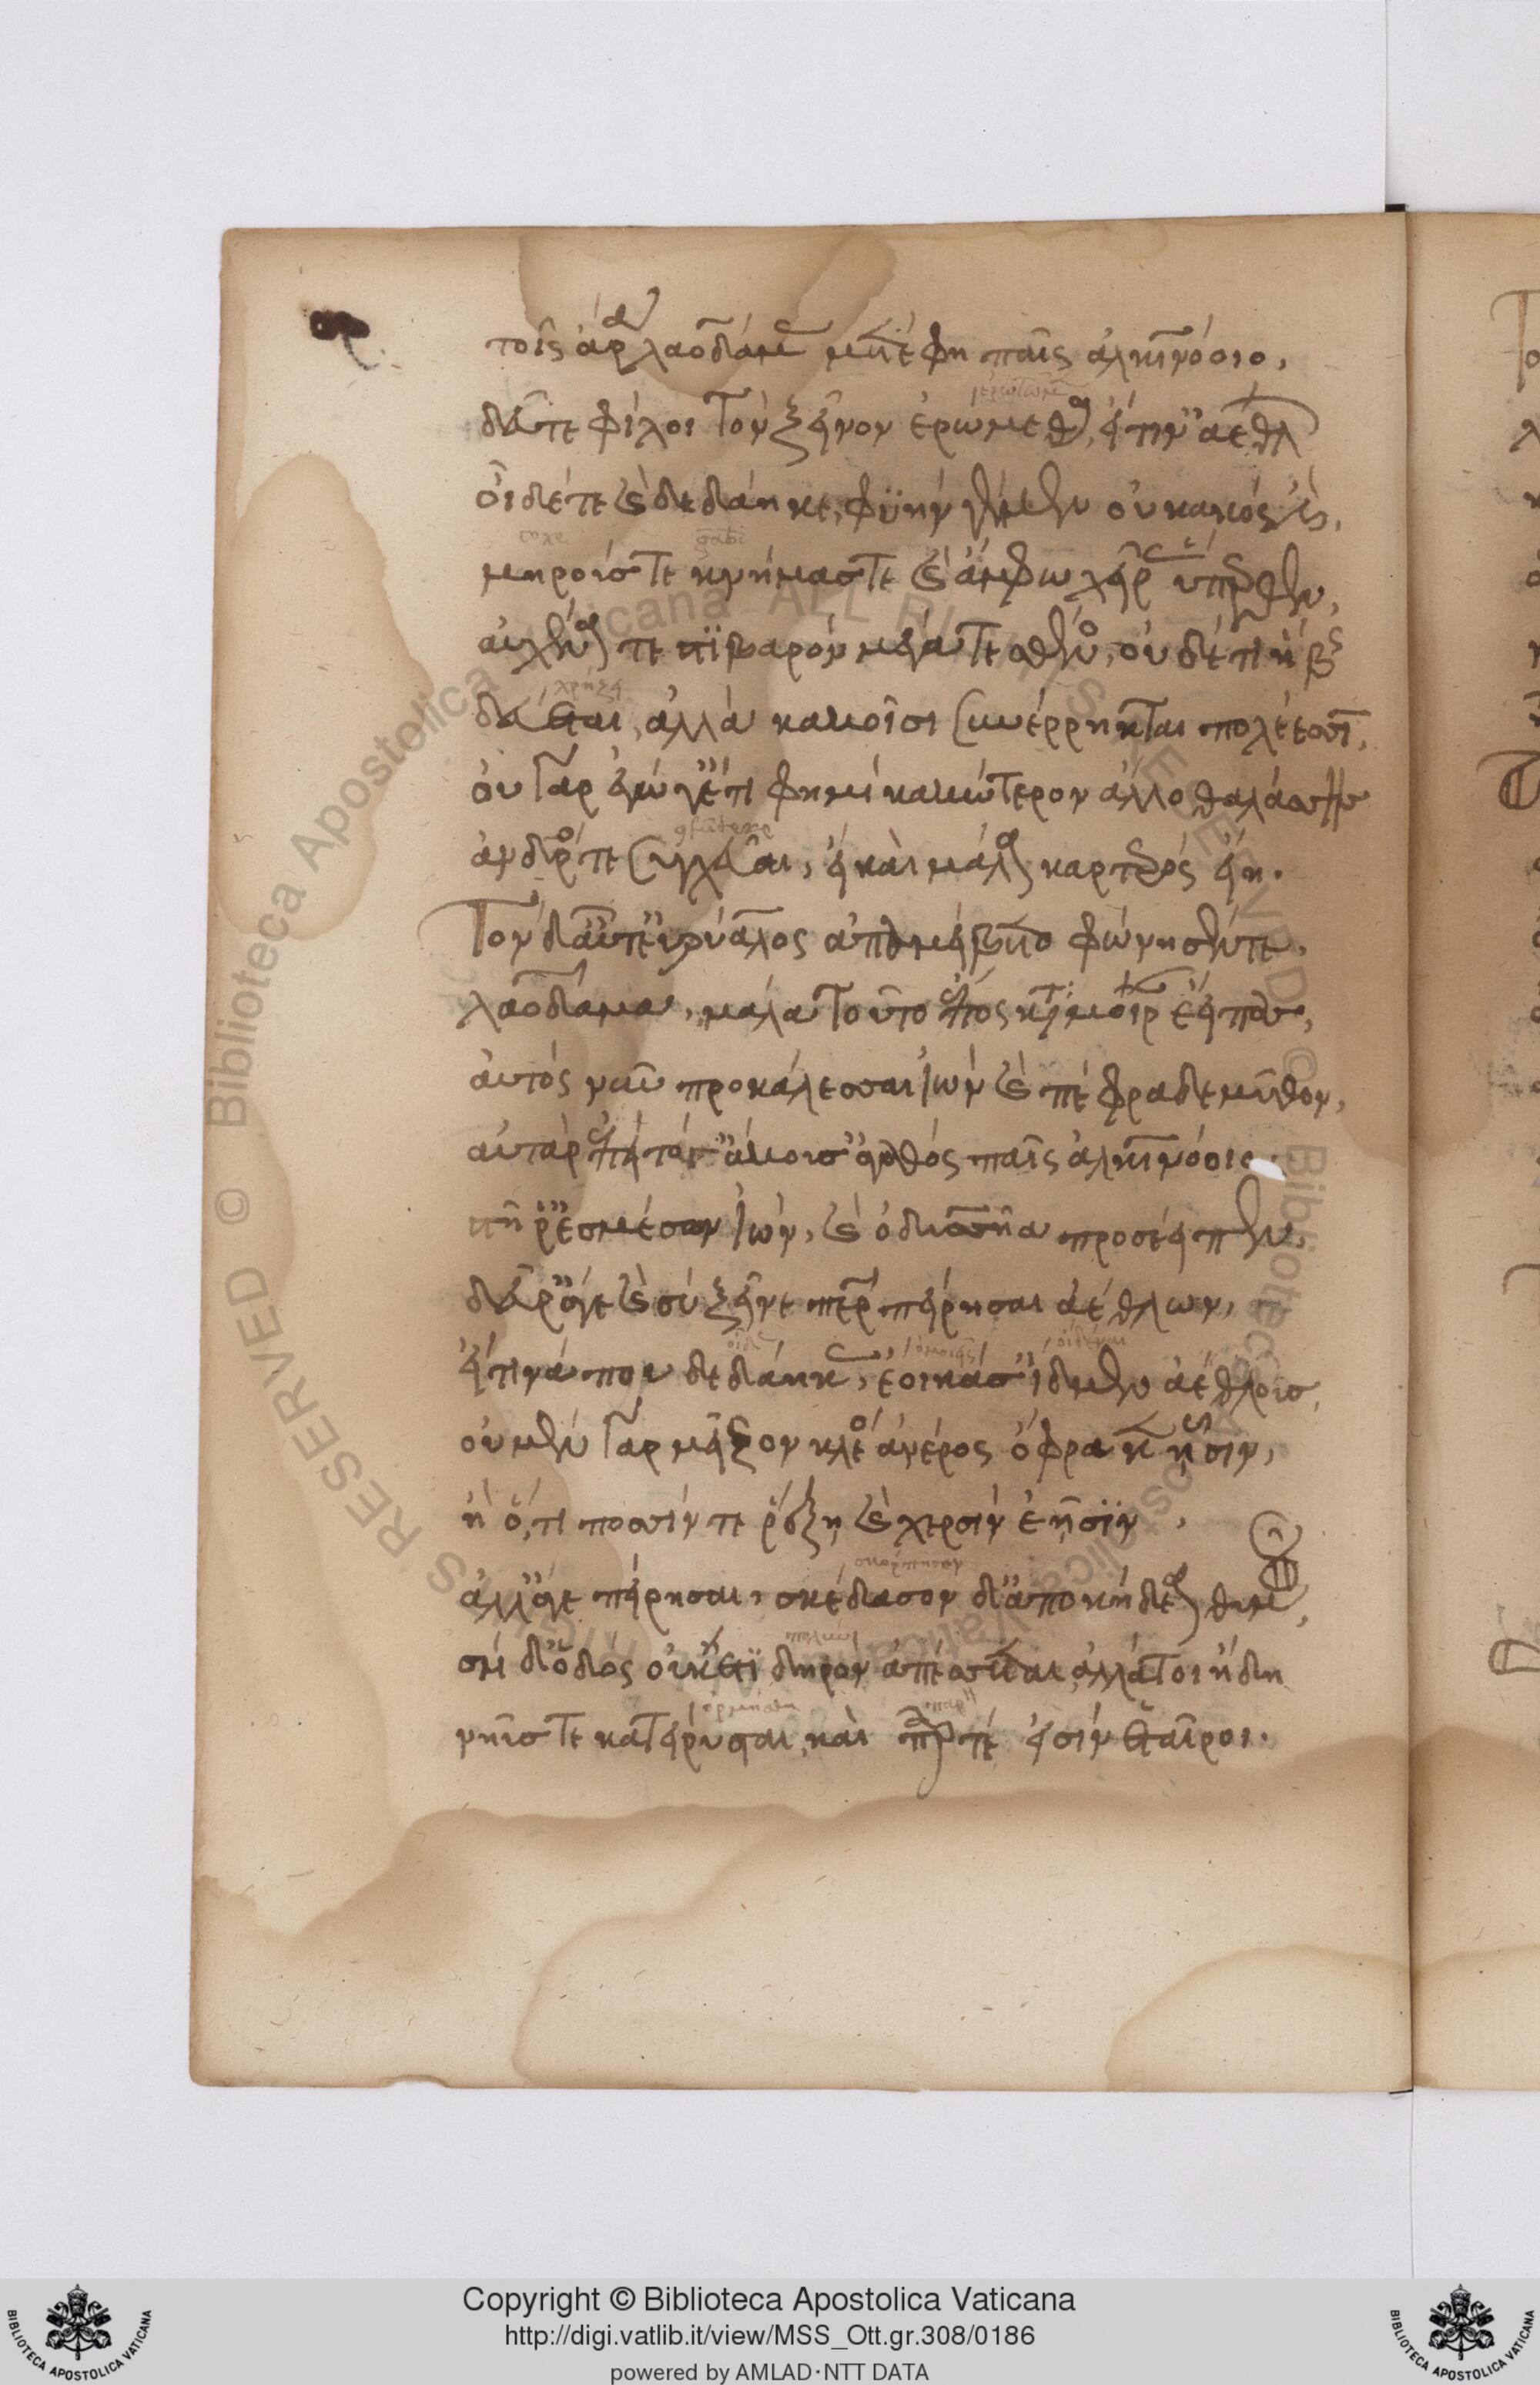 τοῖς ἄρα λαοδάμας μετέφη παῖς ἀλκινόοιο,
δεῦτε φίλοι τὸν ξεῖνον ἐρώμεθα, εἴ τιν' ἄεθλον
οἶδέ τε καὶ δεδάηκε, φυήν γε μὲν οὐ κακός ἐστι,
μηρούς τε κνήμας τε καὶ ἄμφω χεῖρας ὕπερθεν,
αὐχένα τε στιβαρὸν μέγα τε σθένος, οὐδέ τι ἥβης
δεύεται, ἀλλὰ κακοῖσι συνέρρηκται πολέεσσι,
οὐ γὰρ ἐγώ γέ τι φημὶ κακώτερον ἄλλο θαλάσσης
ἄνδρά τε συγχεῦαι, εἰ καὶ μάλα καρτερὸς εἴη.
Τὸν δ' αὖτ' εὐρύαλος ἀπαμείβετο φώνησέν τε,
λαοδάμα, μάλα τοῦτο ἔπος κατὰ μοῖραν ἔειπας,
αὐτὸς νῦν προκάλεσσαι ἰὼν καὶ πέφραδε μῦθον,
αὐτὰρ ἐπεὶ τόγ' ἄκουσ' ἀγαθὸς παῖς ἀλκινόοιο
στῆ ῥ' ἐς μέσσον ἰών, καὶ ὀδυσσῆα προσέειπεν,
δεῦρ' ἄγε καὶ σὺ ξεῖνε πάτερ πείρησαι ἀέθλων,
εἴ τινά που δεδάηκας, ἔοικε δέ σ' ἴδμεν ἀέθλους,
οὐ μὲν γὰρ μεῖζον κλέος ἀνέρος ὄφρα κεν ᾖσιν,
ἢ ὅ,τι ποσσίν τε ῥέξῃ καὶ χερσὶν ἑῇσιν,
ἀλλ' ἄγε πείρησαι, σκέδασον δ' ἀπὸ κήδεα θυμοῦ,
σοὶ δ' ὁδὸς οὐκέτι δηρὸν ἀπέσσεται, ἀλλά τοι ἤδη
νηῦς τε κατείρυσαι, καὶ ἐπαρτέες εἰσὶν ἑταῖροι.
Copyright © Biblioteca Apostolica Vaticana
http://digi.vatlib.it/view/MSS_Ott.gr.308/0186
powered by AMLAD·NTT DATA